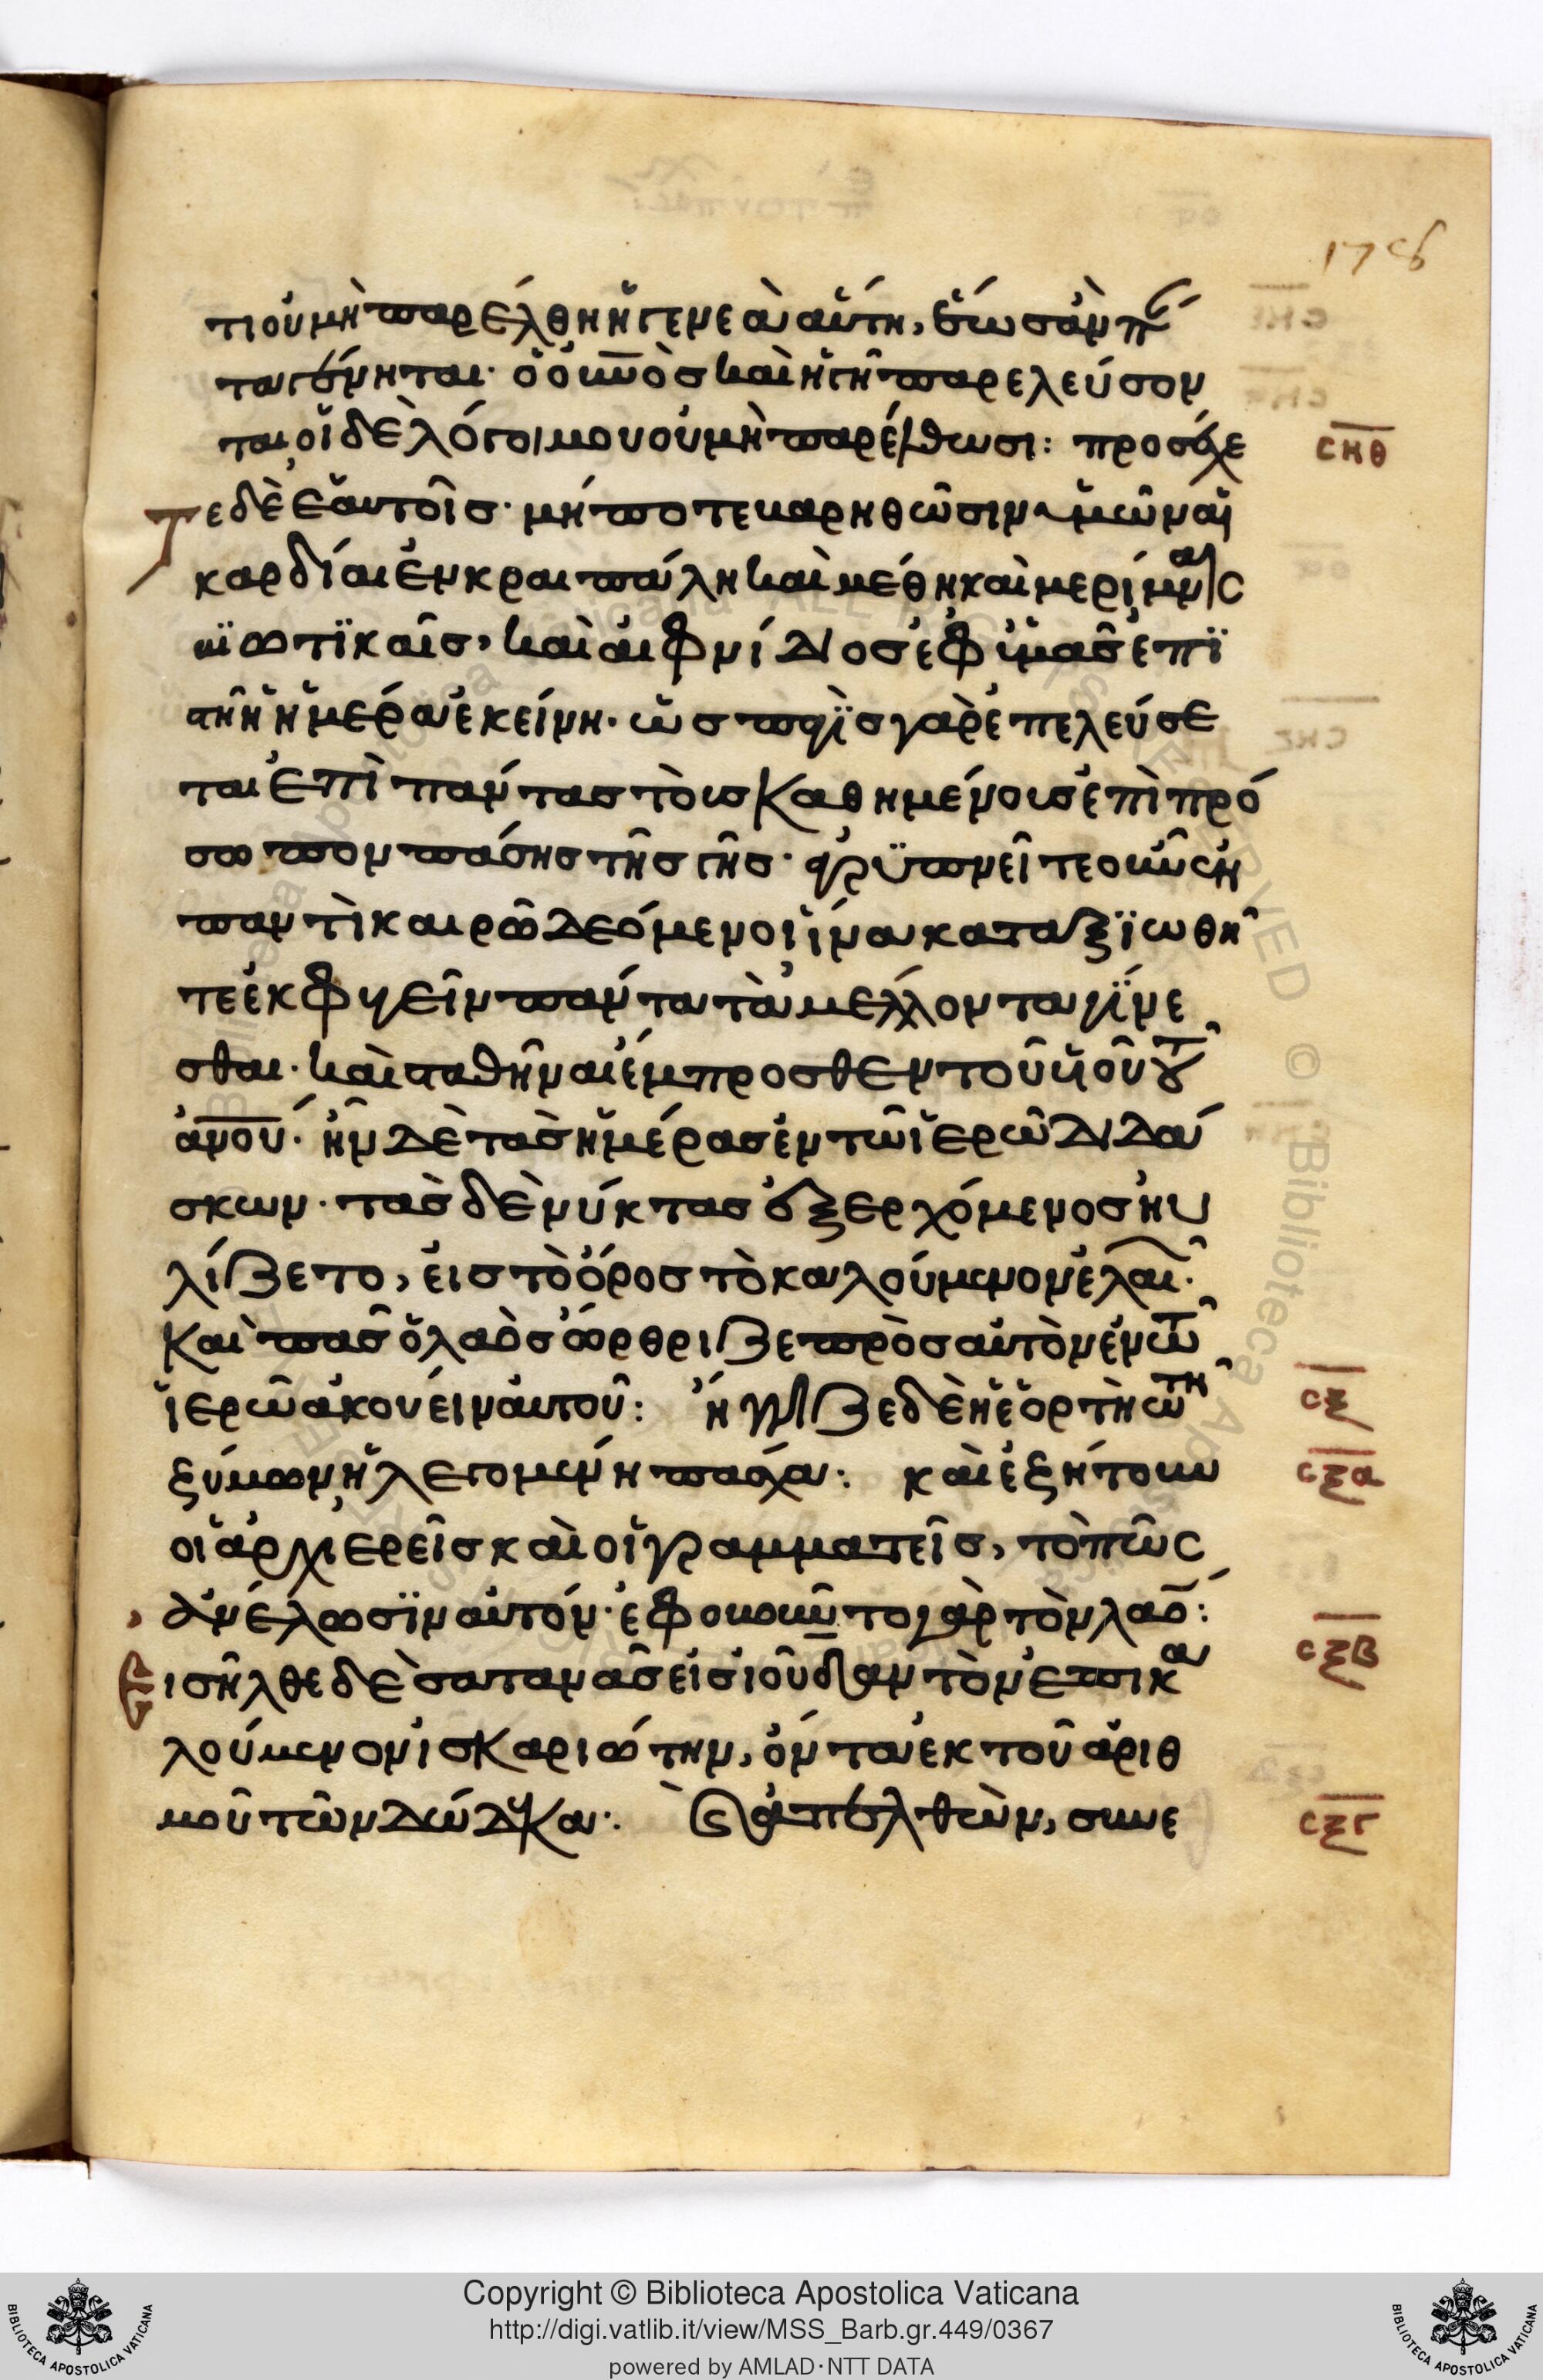 178
τι οὐ μὴ παρέλθη ἡ γενεὰ αὕτη, ἕως ἂν π
τα γένηται· ὁ οὐνὸς καὶ ἡ γῆ παρελεύσον
ται, οἱ δὲ λόγοι μου οὐ μὴ παρέλθωσι: προσέχε
Τε δὲ ἑαυτοῖς· μήποτε βαρηθῶσιν ὑμῶν αἱ
καρδίαι ἐν κραιπάλη καὶ μέθη καὶ μερίμναις
βϊωτϊκαῖς, καὶ αἰφνίδιος ἐφ ὑμᾶς ἐπϊ
στῆ ἡ ἡμέρα ἐκείνη· ὡς παγὶς γὰρ ἐπελεύσε
ται ἐπὶ πάντας τοὺς καθημένους ἐπὶ πρό
σωπον πάσης τῆς γῆς· ἀγρϋπνεῖτε οὖν ἐν
παντὶ καιρῶ δεόμενοι ἵνα καταξϊωθῆ
τε ἐκφυγεῖν πάντα τὰ μέλλοντα γίνε
σθαι· καὶ σταθῆναι ἔμπροσθεν τοῦ υἱοῦ τοῦ
ἀνου· ἦν δὲ τὰς ἡμέρας ἐν τῶ ἱερῶ διδά
σκων· τὰς δὲ νύκτας ἐξερχόμενος ηὐ
λίζετο, εἰς τὸ ὄρος τὸ καλούμενον ἐλαι·
Καὶ πᾶς ὁ λαὸς ὤρθριζε πρὸς αὐτὸν ἐν τῶ
ἱερῶ ἀκούειν αὐτοῦ: ἤγγιζε δὲ ἡ ἑορτὴ τῶ
ζύμων ἡ λεγομένη πάσχα: καὶ ἐζήτουν
οἱ ἀρχιερεῖς καὶ οἱ γραμματεῖς, τὸ πῶς
ἀνέλωσϊν αὐτόν· ἐφοβοῦντο γὰρ τὸν λαό:
Εισῆλθε δὲ σατανᾶς εἰς ἰούδαν τὸν ἐπικα
λούμενον ἰσκαριώτην, ὄντα ἐκ τοῦ ἀριθ
μοῦ τῶν δώδεκα: καὶ ἀπελθὼν, συνε
ϲνθ
ϲξ
ϲξα
ϲξβ
ϲξγ
Copyright © Biblioteca Apostolica Vaticana
http://digi.vatlib.it/view/MSS_Barb.gr.449/0367
powered by AMLAD·NTT DATA
BIBLIOTECA APOSTOLICA VATICANA
BIBLIOTECA APOSTOLICA VATICANA